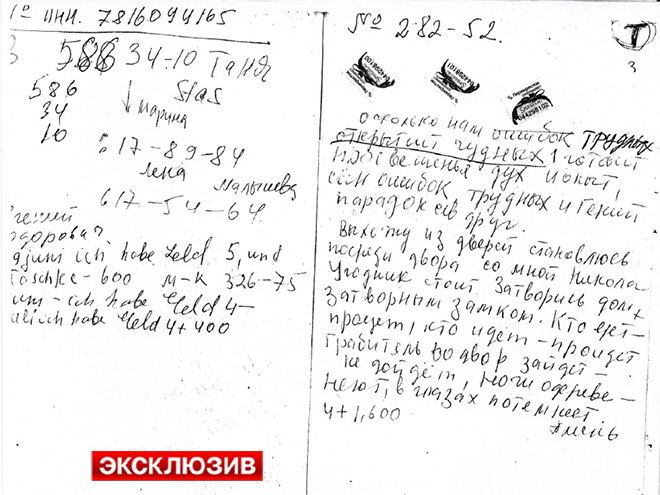 ИНН. 7816094165
3 586 34-10 Таня
586
34
10
↓ Stas
Марина
: 17-89-84
Лена
Малышева
617-54-64
ich habe Geld 5, und
600 м-к 326-75
ich habe Geld 4-
ich habe Geld 4+400
№ 282-52.
T
3
О сколько нам ошибок трудных
открытий чудных готовит
просвещенья дух и опыт,
сын ошибок трудных и гений
парадоксов друг.
Выхожу из дверей становлюсь
посреди двора со мной Никола
Угодник стоит затворись дом,
затворным замком. Кто едет-
проедет, кто идет - пройдет.
Грабитель во двор зайдет -
не дойдёт, ноги одереве-
неют, в глазах потемнеет
Аминь
4+1,600
ЭКСКЛЮЗИВ